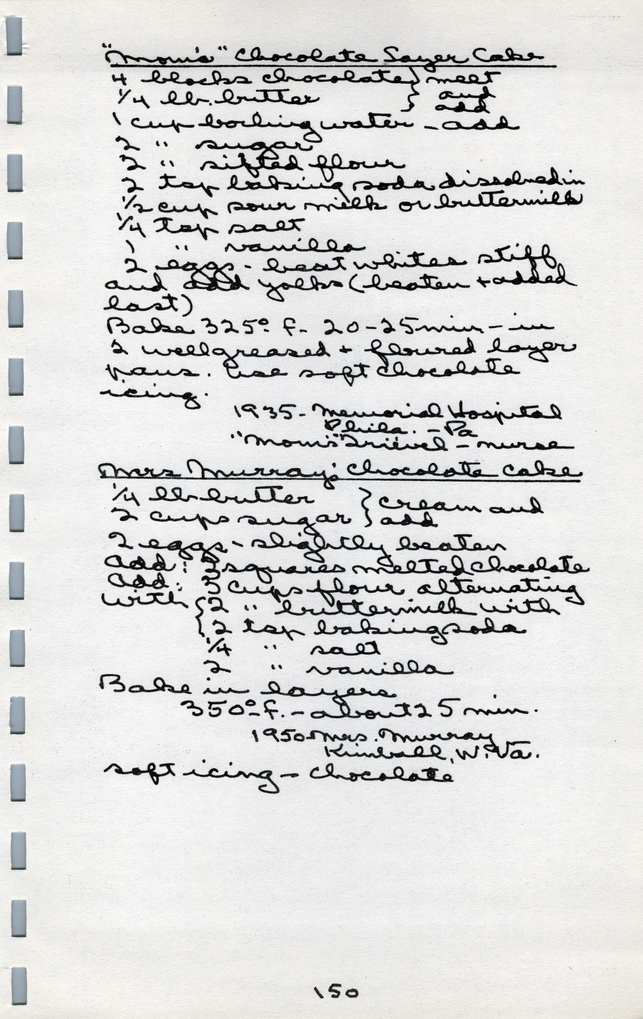 "Mom's" Chocolate Layer Cake
4 blocks chocolate } melt
1/4 lb. butter } and add
1 cup boiling water - add
2 " sugar
2 " sifted flour
2 tsp baking soda dissolved in
1/2 cup sour milk or buttermilk
1/4 tsp salt
1 " vanilla
2 eggs - beat whites stiff
and add yolks (beaten + added
last)
Bake 325° f. 20-25 min - in
2 well greased + floured layer
pans. Use soft chocolate
icing.
1935 - Memorial Hospital
Phila. - Pa
"Mom's" - nurse
Mrs Murray's Chocolate Cake
1/4 lb. butter } cream and
2 cups sugar } add
2 eggs - slightly beaten
Add: squares melted chocolate
Add: 3 cups flour alternating
with { 2 " buttermilk with
{ 2 tsp baking soda
1/4 " salt
2 " vanilla
Bake in layers
350° f. - about 25 min.
1950 - Mrs. Murray
Kimball, W. Va.
soft icing - chocolate
150